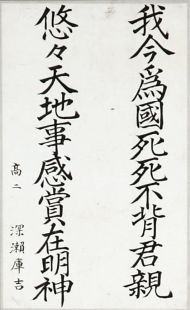 我今為國死死不背君親
悠々天地事感賞在明神
高二
深瀬庫吉